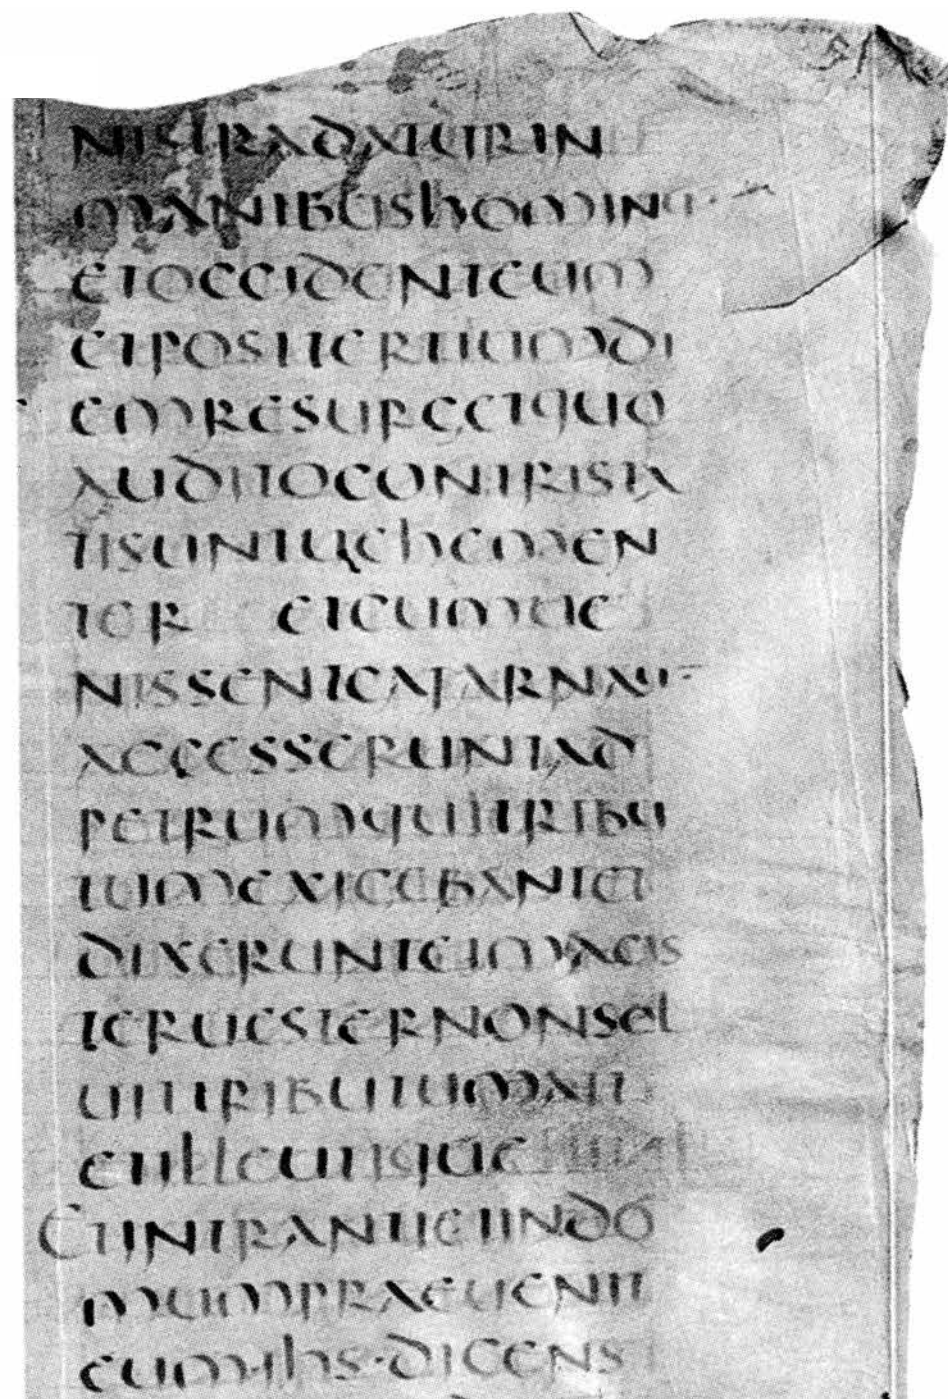 NISTRADATURIN
MANIBUSHOMINU
ETOCCIDENTEUM
ETPOSTTERTIUMDI
EMRESURGETQUO
AUDITOCONTRISTA
TISUNTUEHEMEN
TER ETCUMUE
NISSENTCAFARNAU
ACCESSERUNTAD
PETRUMQUITRIBU
TUMEXIGEBANTET
DIXERUNTEIMAGIS
TERUESTERNONSOL
UITTRIBUTUMAIT
ETILLEUTIQUE
ETINTRANTIEIINDO
MUMPRAEUENIT
EUM·IHS·DICENS